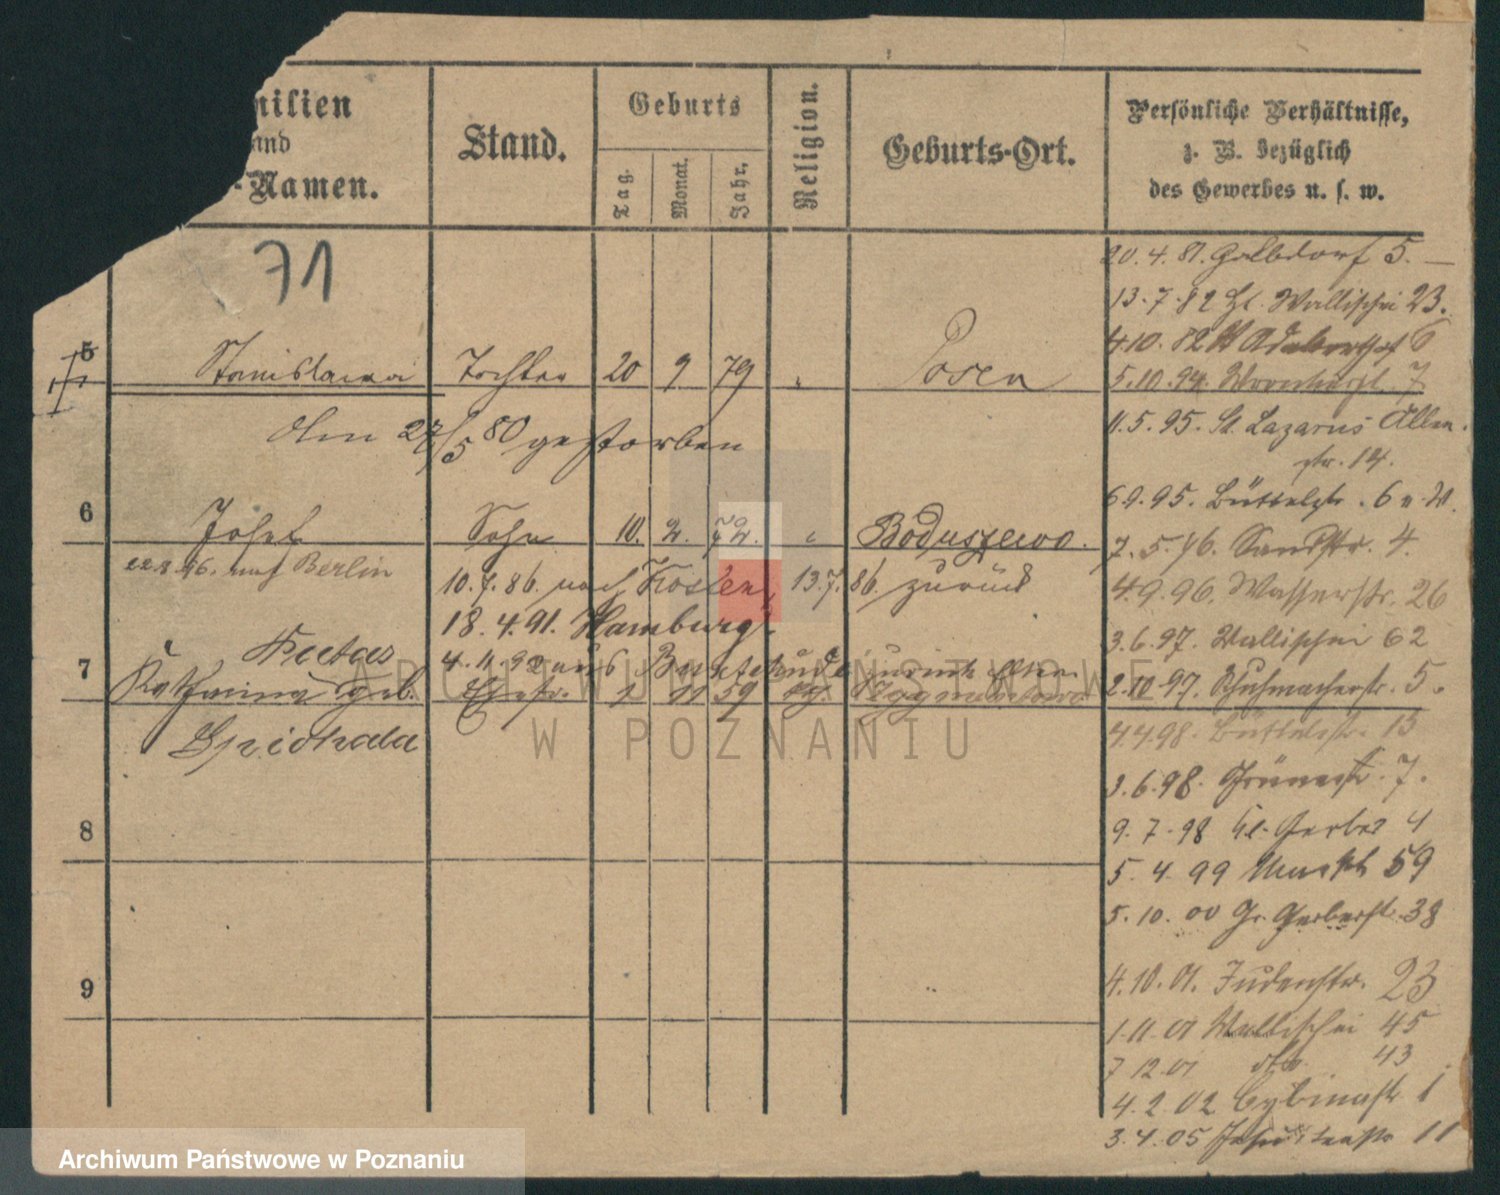 milien
und
-Namen.
Stand.
Geburts
Tag.
Monat.
Jahr.
Religion.
Geburts-Ort.
Persönliche Verhältnisse,
z. B. bezüglich
des Gewerbes u. s. w.
71
5 Stanislawa Tochter 20 9 79 Posen
Am 27/5 80 gestorben
6 Josef Sohn 10. 2. 72. Boduszewo.
22.8.96. nach Berlin
10.7.86. nach Kosten, 13.7.86. zurück
18.4.91. Hamburg.
4.11.92 aus zurück
7 Katharina geb. Ehefr. 1 11 59
20.4.81. 5.
13.7.82 Wallischei 23.
4.10.82 6
5.10.94. 7
11.5.95. St. Lazarus Allen
str. 14.
6.9.95. Büttelstr. 6 u.
7.5.96. Sandstr. 4.
4.9.96. Wasserstr. 26
3.6.97. Wallischei 62
2.10.97. Schuhmacherstr. 5.
4.4.98. Büttelstr. 13
3.6.98. 7.
9.7.98 Kl. Gerber 4
5.4.99 Markt 59
5.10.00 Gr. Gerberstr. 38
4.10.01. Judenstr. 23
1.11.01 Wallischei 45
7 12.01 dto. 43
4.2.02 Cybinastr. 1
3.4.05 11
8
9
ARCHIWUM PAŃSTWOWE
W POZNANIU
Archiwum Państwowe w Poznaniu